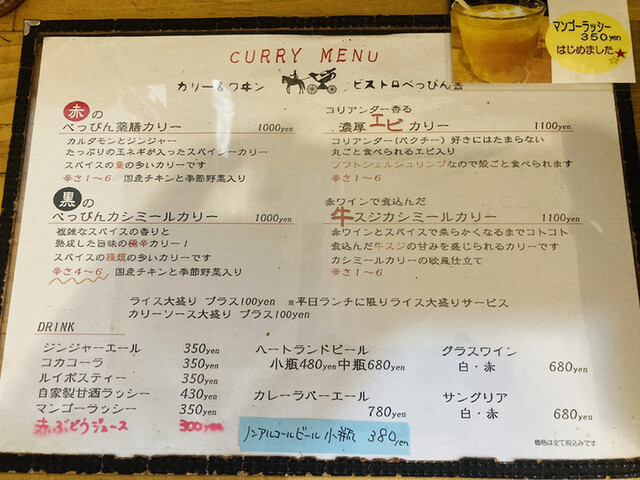 マンゴーラッシー
350yen
はじめました
CURRY MENU
カリー&ワヰン ビストロべっぴん舎
赤の
べっぴん薬膳カリー 1000yen
カルダモンとジンジャー
たっぷりの玉ネギが入ったスパイシーカリー
スパイスの量の多いカリーです
辛さ1~6 国産チキンと季節野菜入り
コリアンダー香る
濃厚エビカリー 1100yen
コリアンダー(パクチー)好きにはたまらない
丸ごと食べられるエビ入り
ソフトシェルシュリンプなので殻ごと食べられます
辛さ1~6
黒の
べっぴんカシミールカリー 1000yen
複雑なスパイスの香りと
熟成した旨味の極辛カリー!
スパイスの種類の多いカリーです
辛さ4~6 国産チキンと季節野菜入り
赤ワインで煮込んだ
牛スジカシミールカリー 1100yen
赤ワインとスパイスで柔らかくなるまでコトコト
煮込んだ牛スジの甘みを感じられるカリーです
カシミールカリーの欧風仕立て
辛さ1~6
ライス大盛り プラス100yen ※平日ランチに限りライス大盛りサービス
カリーソース大盛り プラス100yen
DRINK
ジンジャーエール 350yen
コカコーラ 350yen
ルイボスティー 350yen
自家製甘酒ラッシー 430yen
マンゴーラッシー 350yen
赤ぶどうジュース 300yen
ハートランドビール
小瓶480yen 中瓶680yen
カレーラバーエール
780yen
ノンアルコールビール 小瓶 380yen
グラスワイン
白・赤 680yen
サングリア
白・赤 680yen
価格は全て税込みです